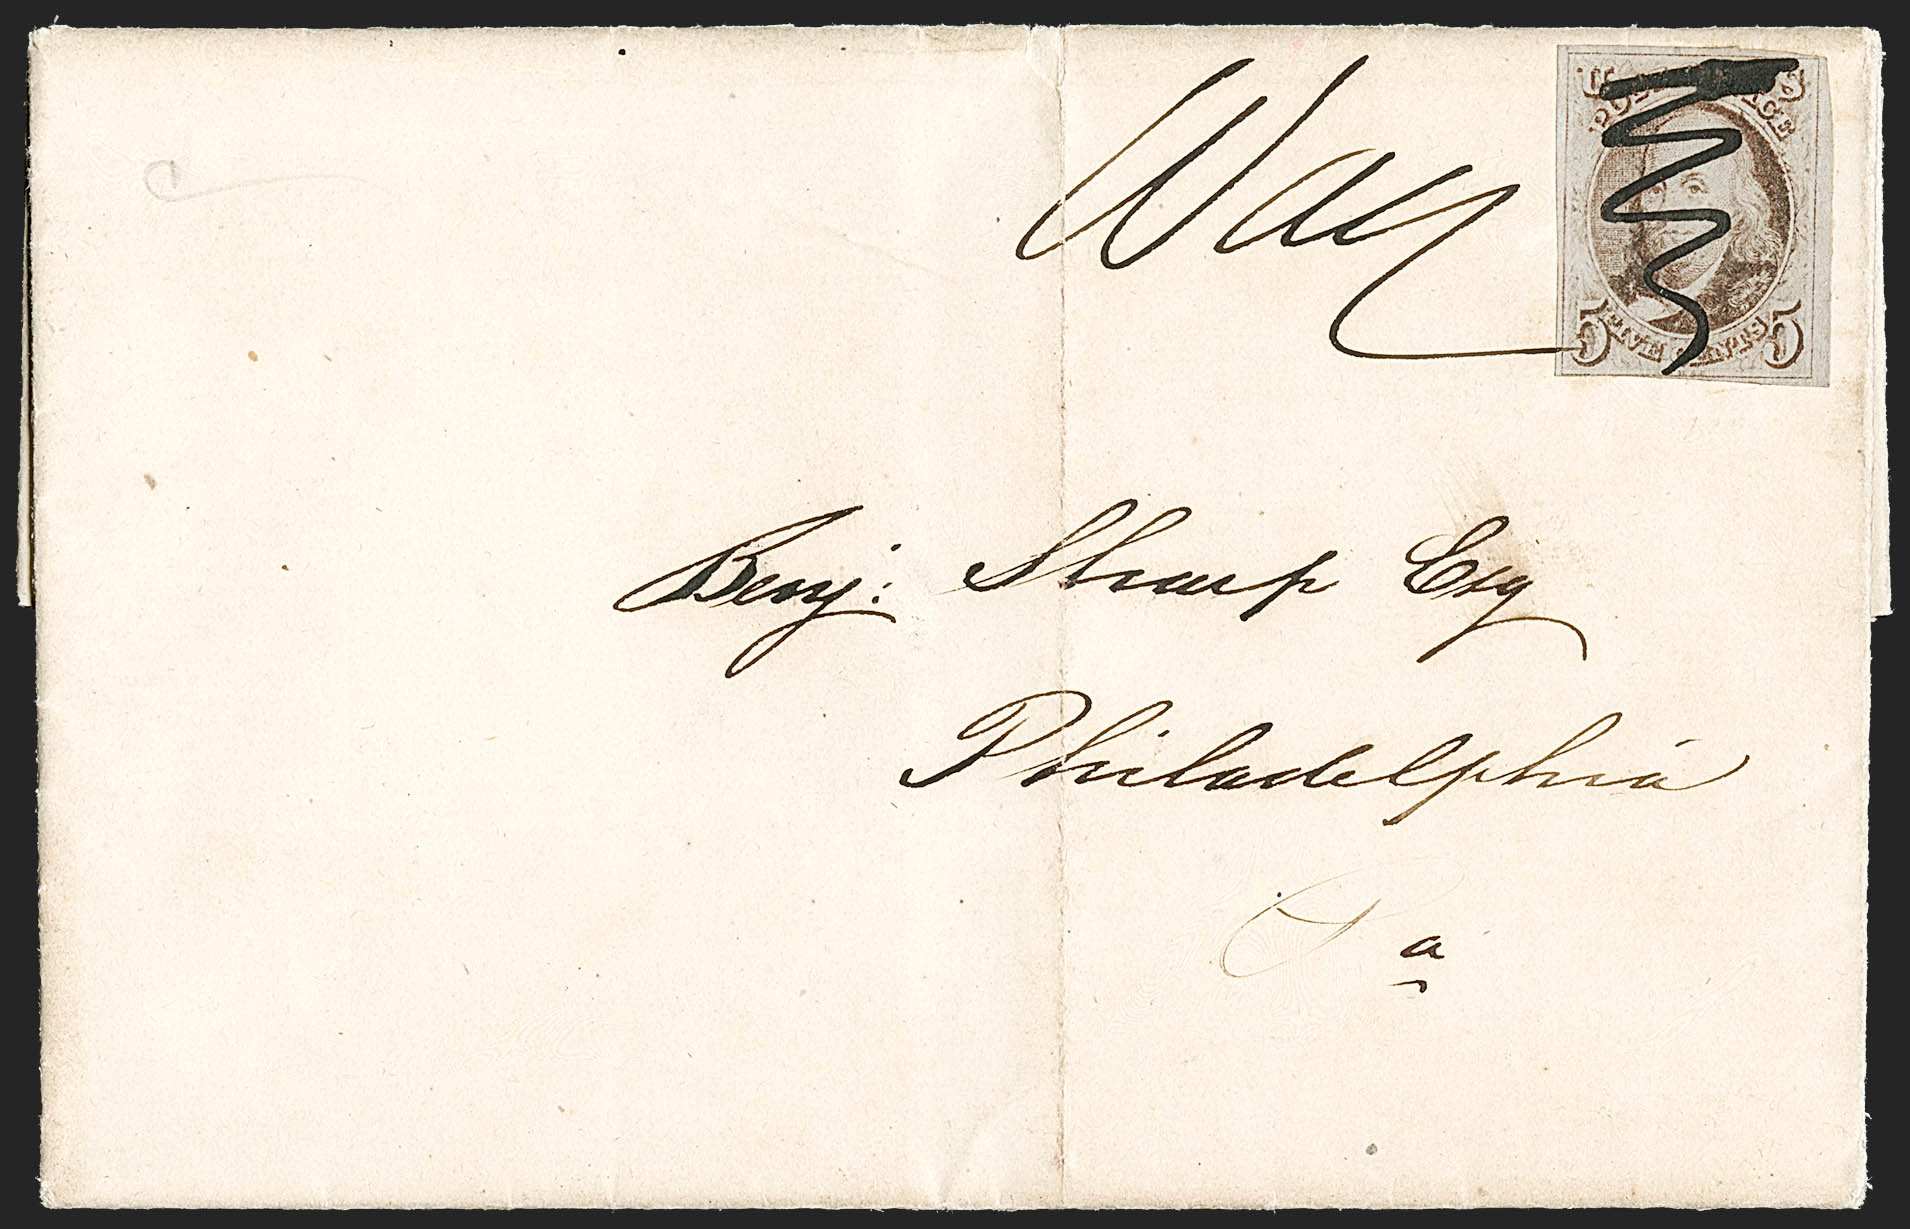 Way
POST OFFICE
5 5
FIVE CENTS
Benj: Sharp Esq
Philadelphia
Pa